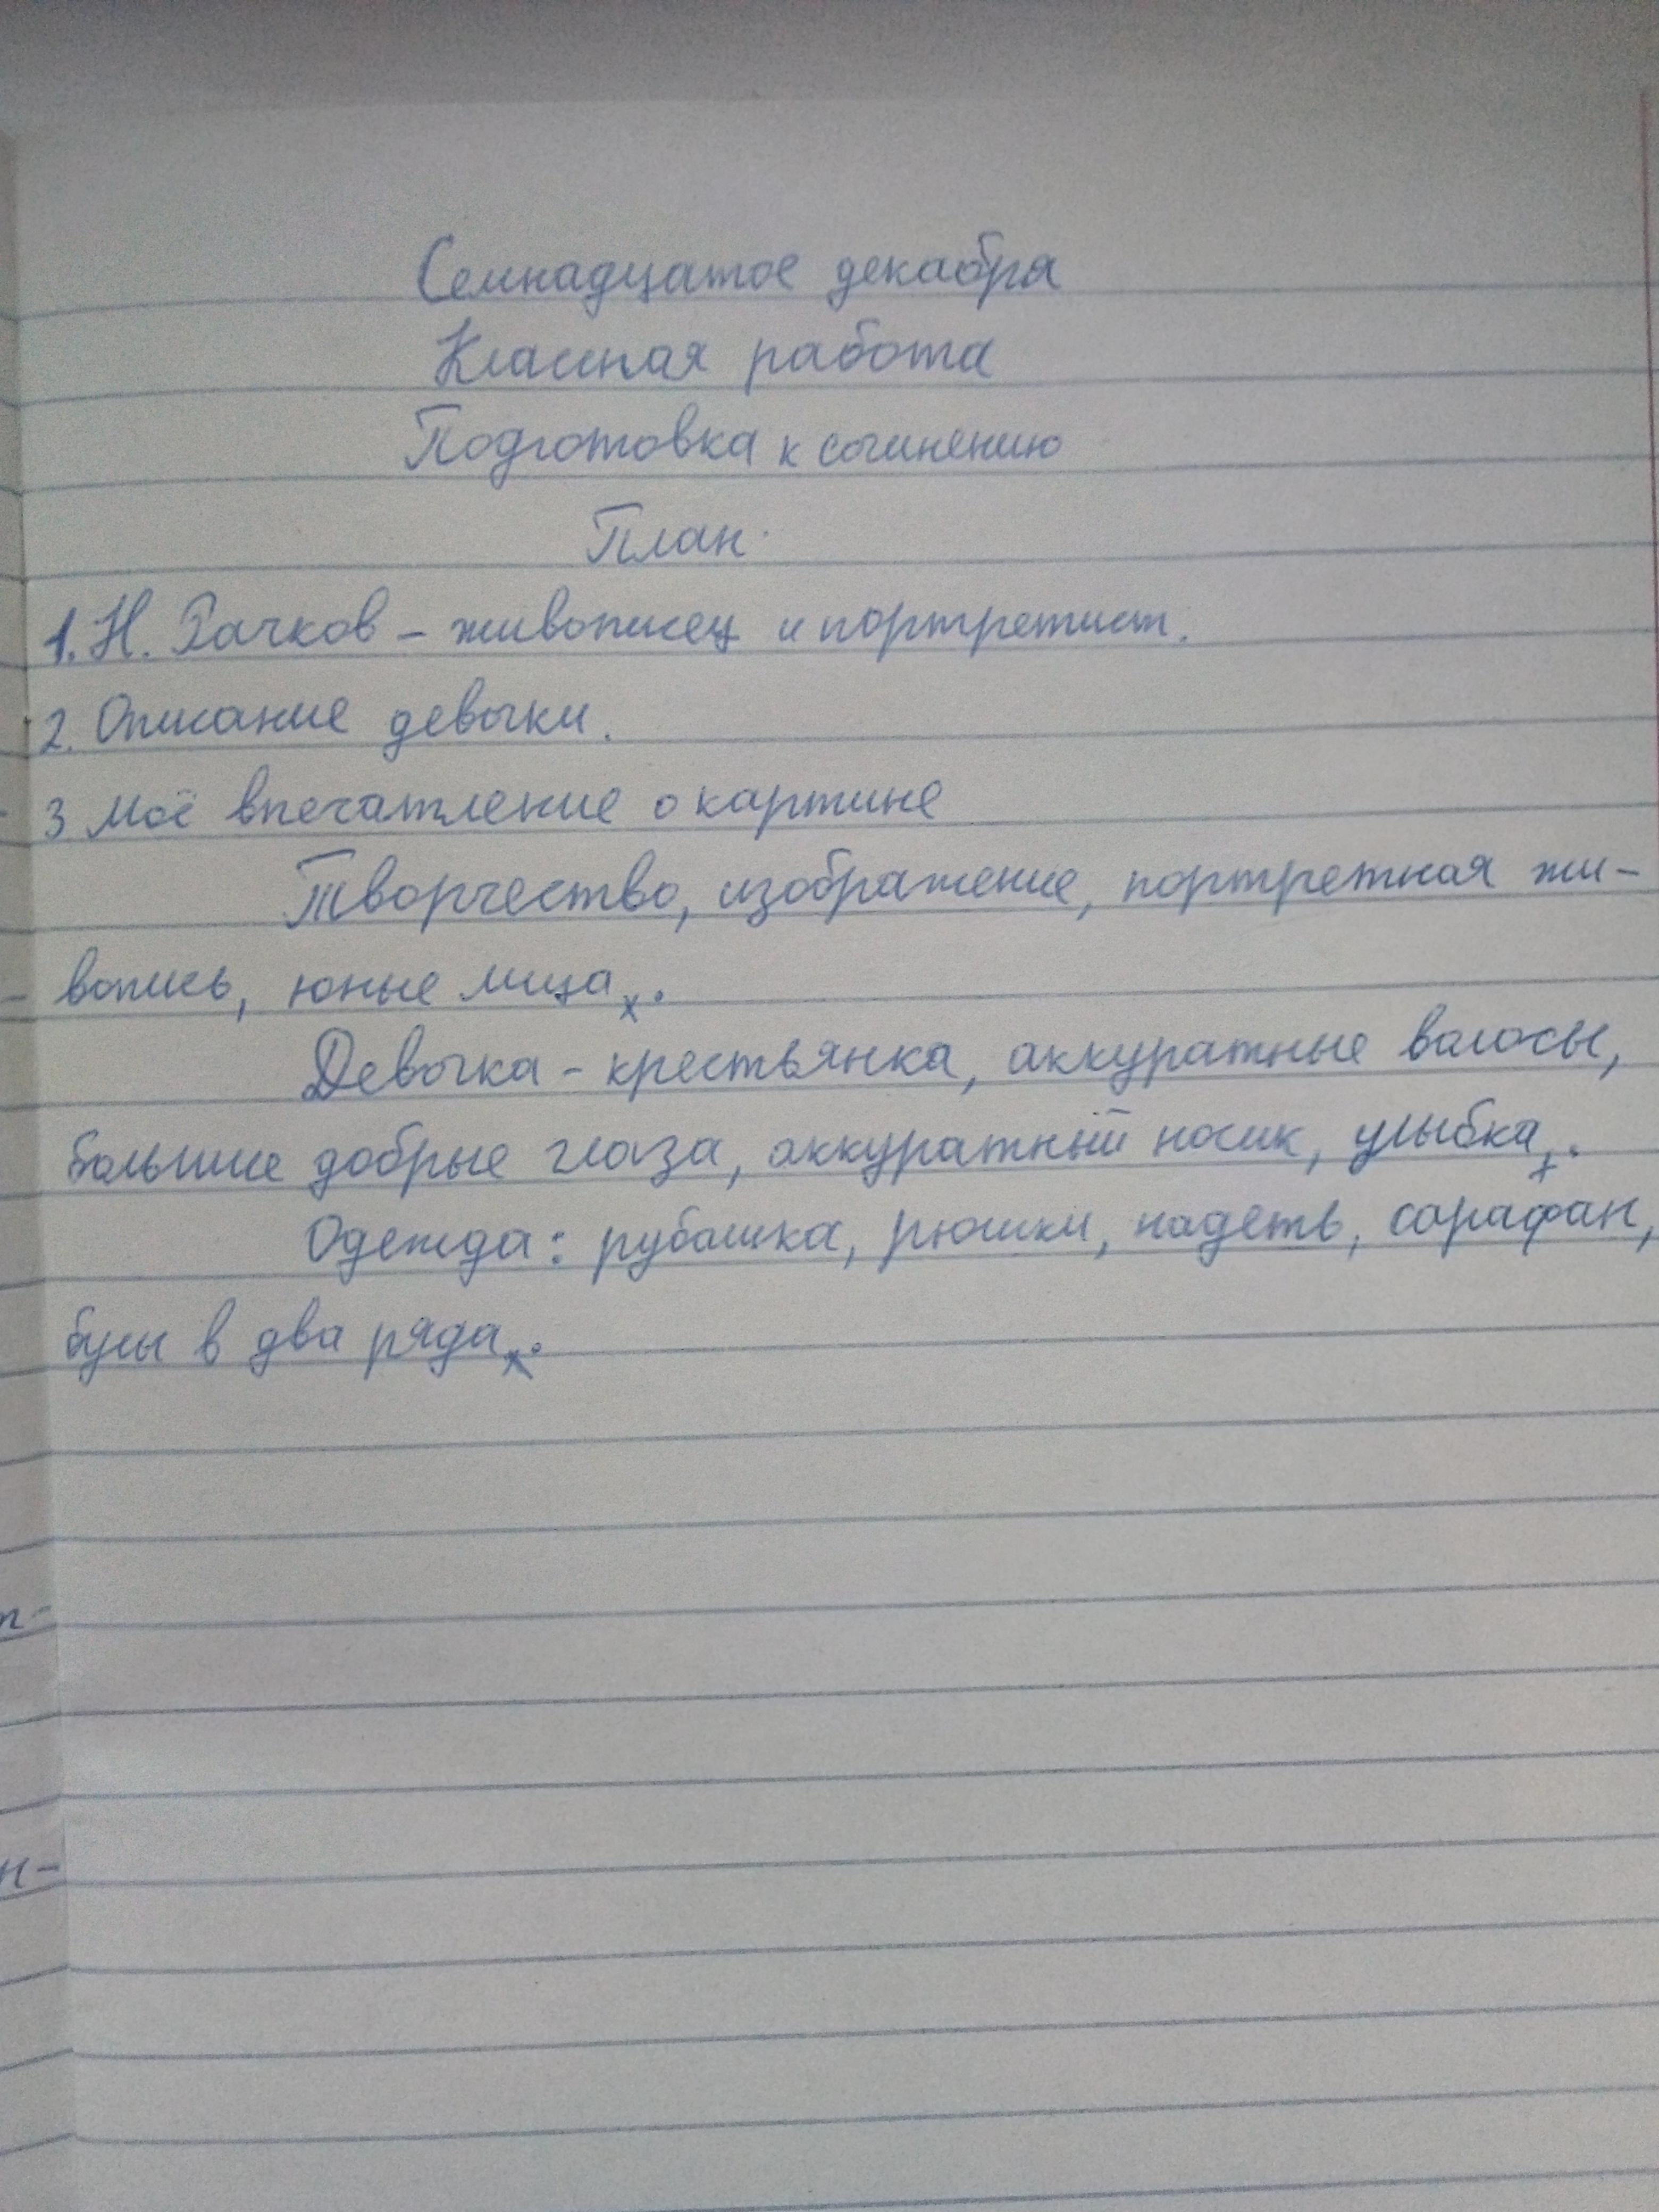 Семнадцатое декабря
Классная работа
Подготовка к сочинению
План.
1. Н. Рачков – живописец и портретист.
2. Описание девочки.
3 Моё впечатление о картине
Творчество, изображение, портретная жи-
вопись, юные лица,.
Девочка - крестьянка, аккуратные волосы,
большие добрые глаза, аккуратный носик, улыбка,.
Одежда: рубашка, рюшки, надеть, сарафан,
бусы в два ряда,.
н-